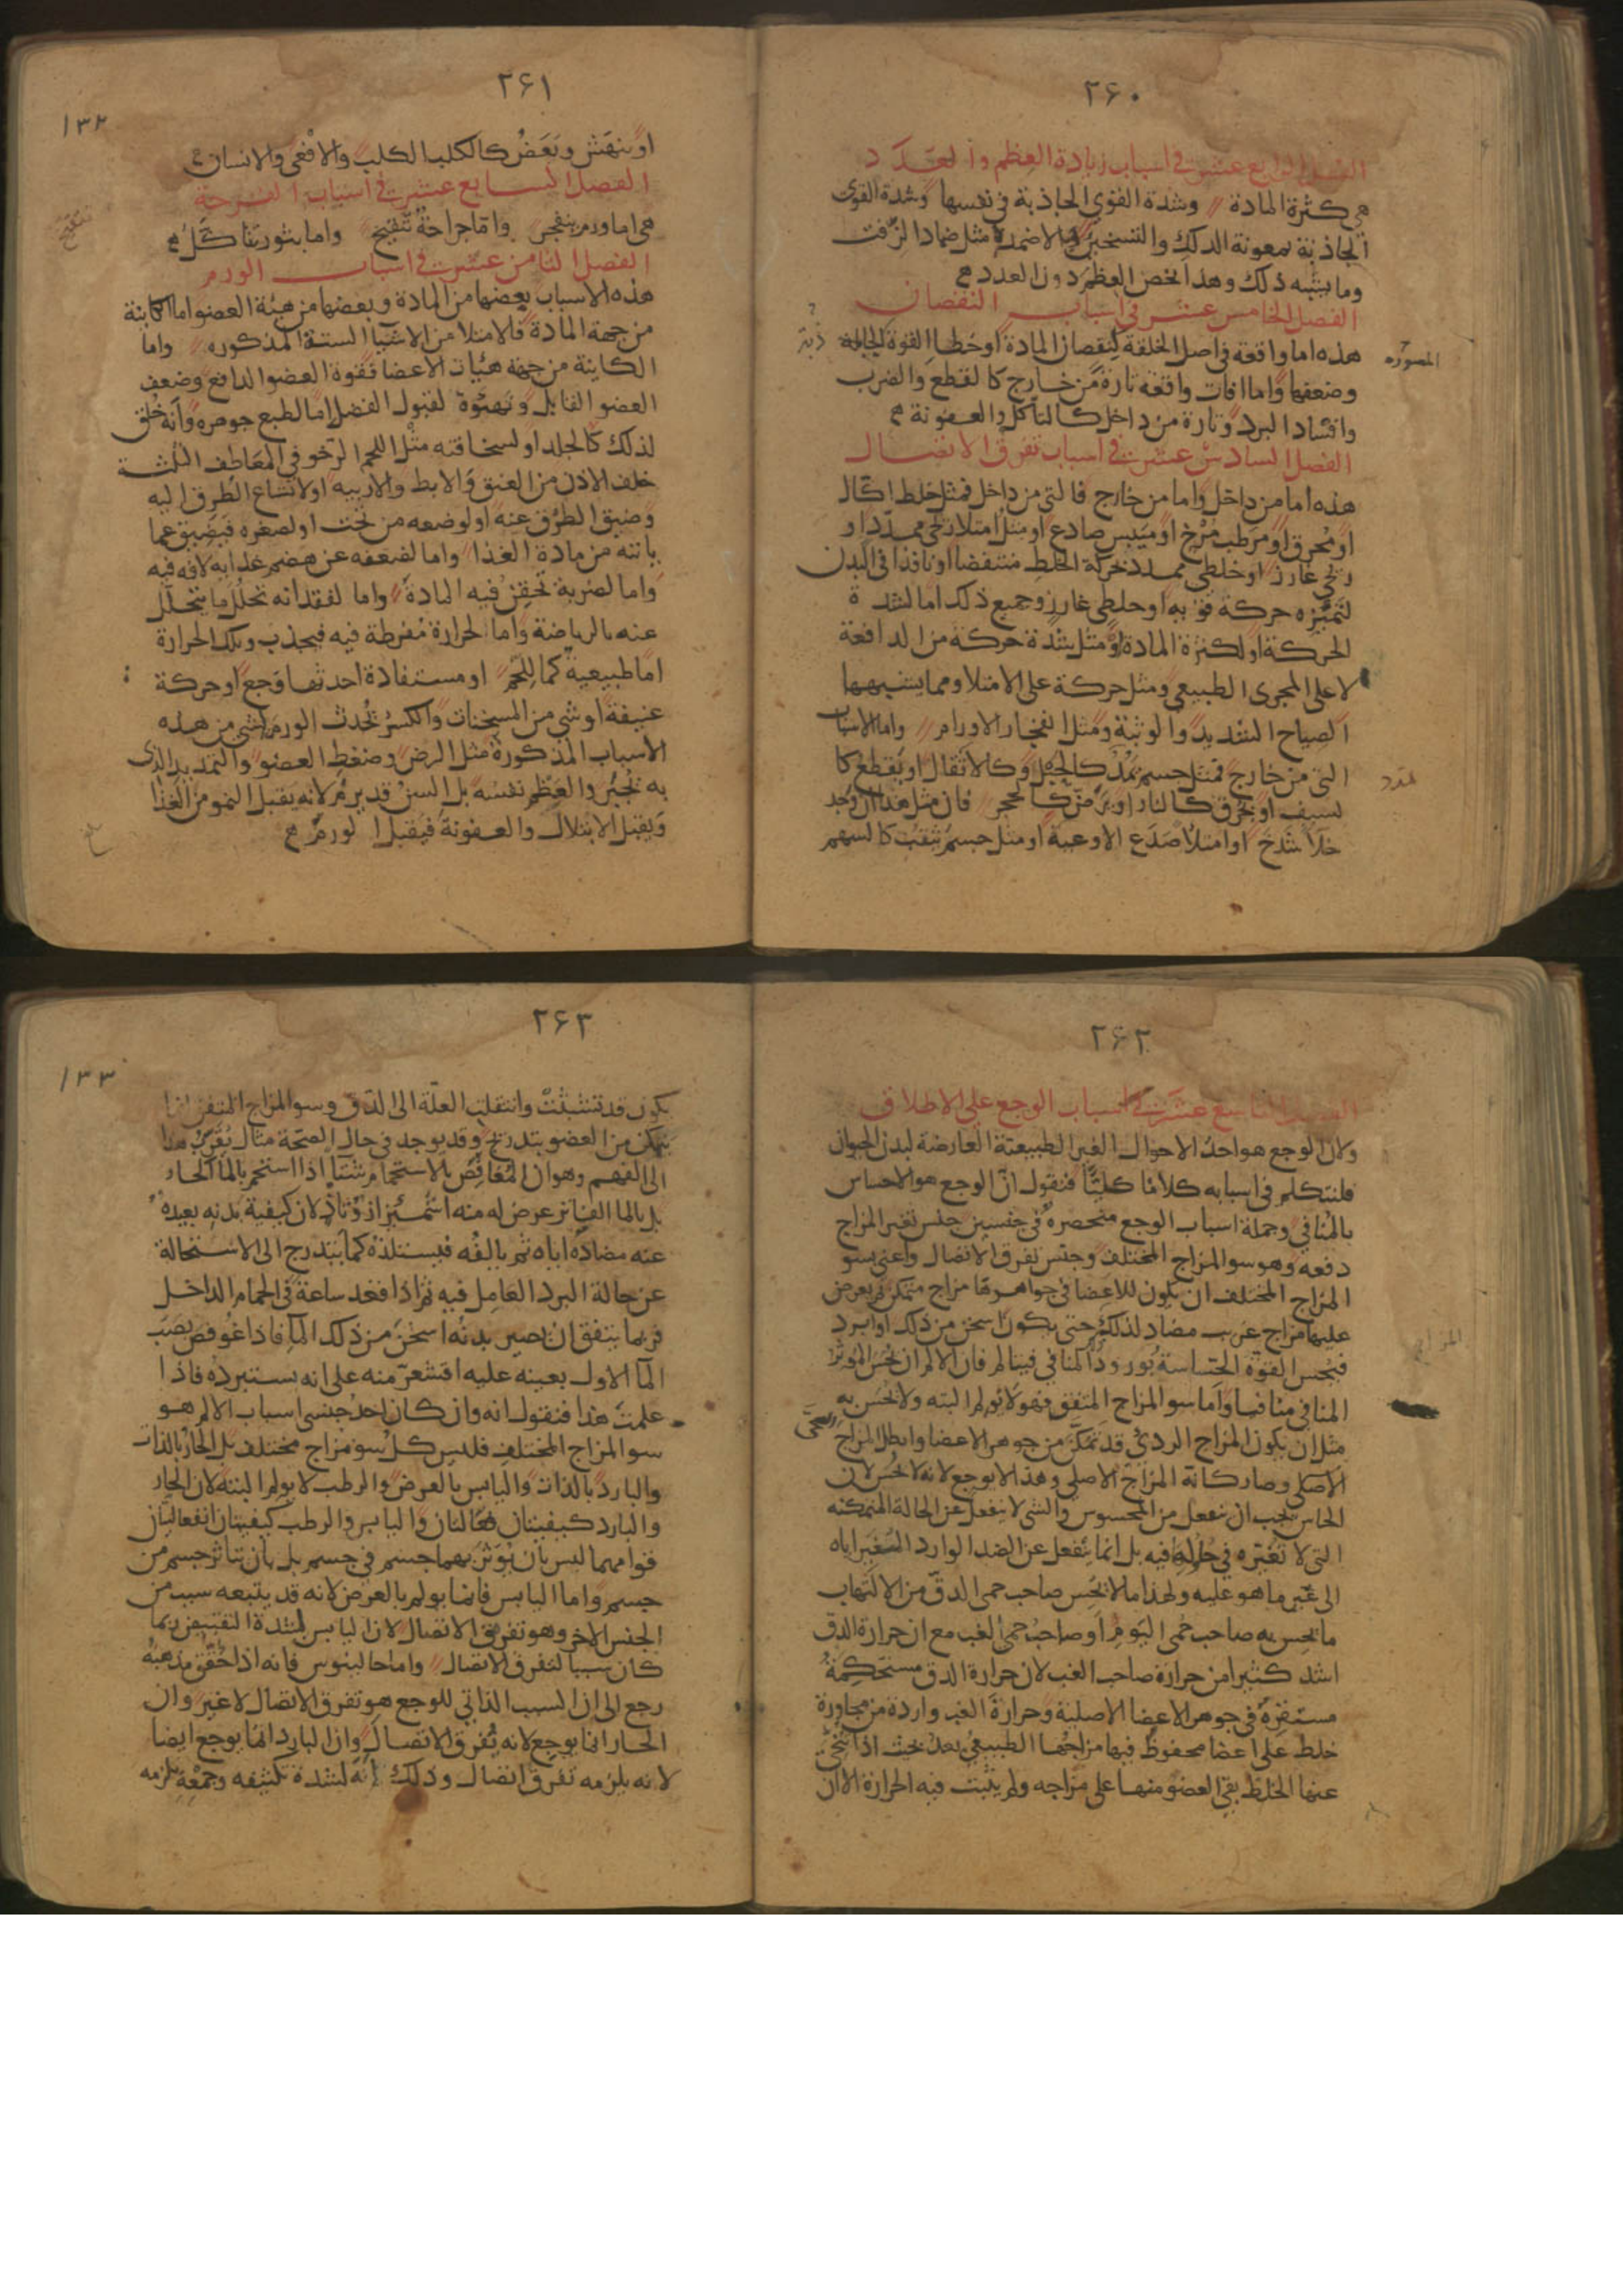 ٢۶٠
الفصل الرابع عشر في اسباب زيادة العظم والعدد
هي كثرة المادة وشدة القوى الجاذبة في نفسها وشدة القوى
الجاذبة بمعونة الدلك والتسخين بالاضمدة مثل ضماد الزفت
وما يشبه ذلك وهذا يخص العظم دون العدد
الفصل الخامس عشر في اسباب النقصان
هذه اما واقعة في اصل الخلقة لنقصان المادة او خطا القوة
المصوره
وضعفها واما افات واقعة تارة من خارج كالقطع والضرب
وافساد البرد وتارة من داخل كالتاكل والعفونة
الفصل السادس عشر في اسباب تفرق الاتصال
هذه اما من داخل واما من خارج فالتي من داخل فمثل خلط اكال
او محرق او مرطب مرخ او ميبس صادع او مثل امتلا ريحي ممدد او
ريحي غارز او خلطي ممدد بحركة الخلط منتفضا او نافذا في البدن
لتميزه حركة قوية او خلطي غارز وجميع ذلك اما لشدة
الحركة او لكثرة المادة او مثل شدة حركة من الدافعة
لا على المجرى الطبيعي ومثل حركة على الامتلا ومما يشبهها
الصياح الشديد والوثبة ومثل انفجار الاورام واما الاسباب
التي من خارج فمثل جسم يمدد كالحبل وكالاثقال او يقطع كا
لسيف او يحرق كالنار او يرض كالحجر فان مثل هذا ان وجد
خلا شدخ او امتلا صدع الاوعية او مثل جسم يثقب كالسهم
٢۶١
١٣٢
او ينهش ويعض كالكلب الكلب والافعى والانسان
الفصل السابع عشر في اسباب القرحة
هي اما ورم ينفجر واما جراحة تتقيح واما بثور تتاكل
الفصل الثامن عشر في اسباب الورم
هذه الاسباب بعضها من المادة وبعضها من هيئة العضو اما الكاينة
من جهة المادة فالامتلا من الاشيا الستة المذكوره واما
الكاينة من جهة هيئات الاعضا فقوة العضو الدافع وضعف
العضو القابل وتهيؤه لقبول الفضل اما لطبع جوهره وانه خلق
لذلك كالجلد او لسخافته مثل اللحم الرخو في المعاطف الثلثة
خلف الاذن من العنق والابط والاربيه او لاتساع الطرق اليه
وضيق الطرق عنه او لوضعه من تحت او لصغره فيضيق عما
ياتيه من مادة الغذا واما لضعفه عن هضم غذايه لافه فيه
واما لضربة تحقن فيه المادة واما لفقدانه تحلل ما يتحلل
عنه بالرياضة واما لحرارة مفرطة فيه فيجذب وتلك الحرارة
اما طبيعية كما للحم او مستفادة احدثها وجع او حركة
عنيفة او شي من المسخنات والكسر يحدث الورم لشي من هذه
الاسباب المذكورة مثل الرض وضغط العضو والتمديد الذي
به يجبر والعظم نفسه بل السن قد يرم لانه يقبل النمو من الغذا
ويقبل الابتلال والعفونة فيقبل الورم
٢۶٢
الفصل التاسع عشر في اسباب الوجع على الاطلاق
ولان الوجع هو احد الاحوال الغير الطبيعية العارضة لبدن الحيوان
فلنتكلم في اسبابه كلاما كليا فنقول ان الوجع هو الاحساس
بالمنافي وجملة اسباب الوجع منحصره في جنسين جنس تغير المزاج
دفعه وهو سو المزاج المختلف وجنس تفرق الاتصال واعني بسو
المزاج المختلف ان يكون للاعضا في جواهرها مزاج متمكن ثم يعرض
عليها مزاج غريب مضاد لذلك حتى يكون اسخن من ذلك او ابرد
فيحس القوة الحساسة بورود المنافي فيتالم فان الالم ان يحس الموثر
المنافي منافيا واما سو المزاج المتفق فهو لا يولم البته ولا يحس به
مثل ان يكون المزاج الردي قد تمكن من جوهر الاعضا وابطل المزاج
الاصلي وصار كانه المزاج الاصلي وهذا لا يوجع لانه لا يحس لان
الحاس يجب ان ينفعل من المحسوس والشي لا ينفعل عن الحالة المتمكنه
التي لا تغيره في حاله فيه بل انما ينفعل عن الضد الوارد المغير اياه
الى غير ما هو عليه ولهذا ما لا يحس صاحب حمى الدق من الالتهاب
ما يحس به صاحب حمى اليوم او صاحب حمى الغب مع ان حرارة الدق
اشد كثيرا من حرارة صاحب الغب لان حرارة الدق مستحكمة
مستقرة في جوهر الاعضا الاصلية وحرارة الغب واردة من مجاورة
خلط على اعضا محفوظ فيها مزاجها الطبيعي بعد بحيث اذا تنحى
عنها الخلط بقي العضو منها على مزاجه ولم يثبت فيه الحرارة الا ان
٢۶٣
١٣٣
يكون قد تشبثت وانتقلت العلة الى الدق وسو المزاج المتفق انما
يتمكن من العضو بتدريج وقد يوجد في حال الصحة مثال يقرب هذا
الى الفهم وهو ان المغافص بالاستحمام شتا اذا استحم بالما الحار
بل بالما الفاتر عرض له منه اشمئزاز وتاذ لان كيفية بدنه بعيده
عنه مضاده اياه ثم يالفه فيستلذه كما يتدرج الى الاستحالة
عن حالة البرد العامل فيه ثم اذا قعد ساعة في الحمام الداخل
فربما يتفق ان يصير بدنه اسخن من ذلك الما فاذا غوفص بصب
الما الاول بعينه عليه اقشعر منه على انه يستبرده فاذا
علمت هذا فنقول انه وان كان احد جنسي اسباب الالم هو
سو المزاج المختلف فليس كل سو مزاج مختلف بل الحار بالذات
والبارد بالذات واليابس بالعرض والرطب لا يولم البتة لان الحار
والبارد كيفيتان فعالتان واليابس والرطب كيفيتان انفعاليتان
قوامهما ليس بان يوثر بهما جسم في جسم بل بان يتاثر جسم من
جسم واما اليابس فانما يولم بالعرض لانه قد يتبعه سبب من
الجنس الاخر وهو تفرق الاتصال لان اليابس لشدة التقبيض ربما
كان سببا لتفرق الاتصال واما جالينوس فانه اذا حقق مذهبه
رجع الى ان السبب الذاتي للوجع هو تفرق الاتصال لا غير وان
الحار انما يوجع لانه يفرق الاتصال وان البارد انما يوجع ايضا
لانه يلزمه تفرق اتصال وذلك انه لشدة تكثيفه وجمعه يلزمه